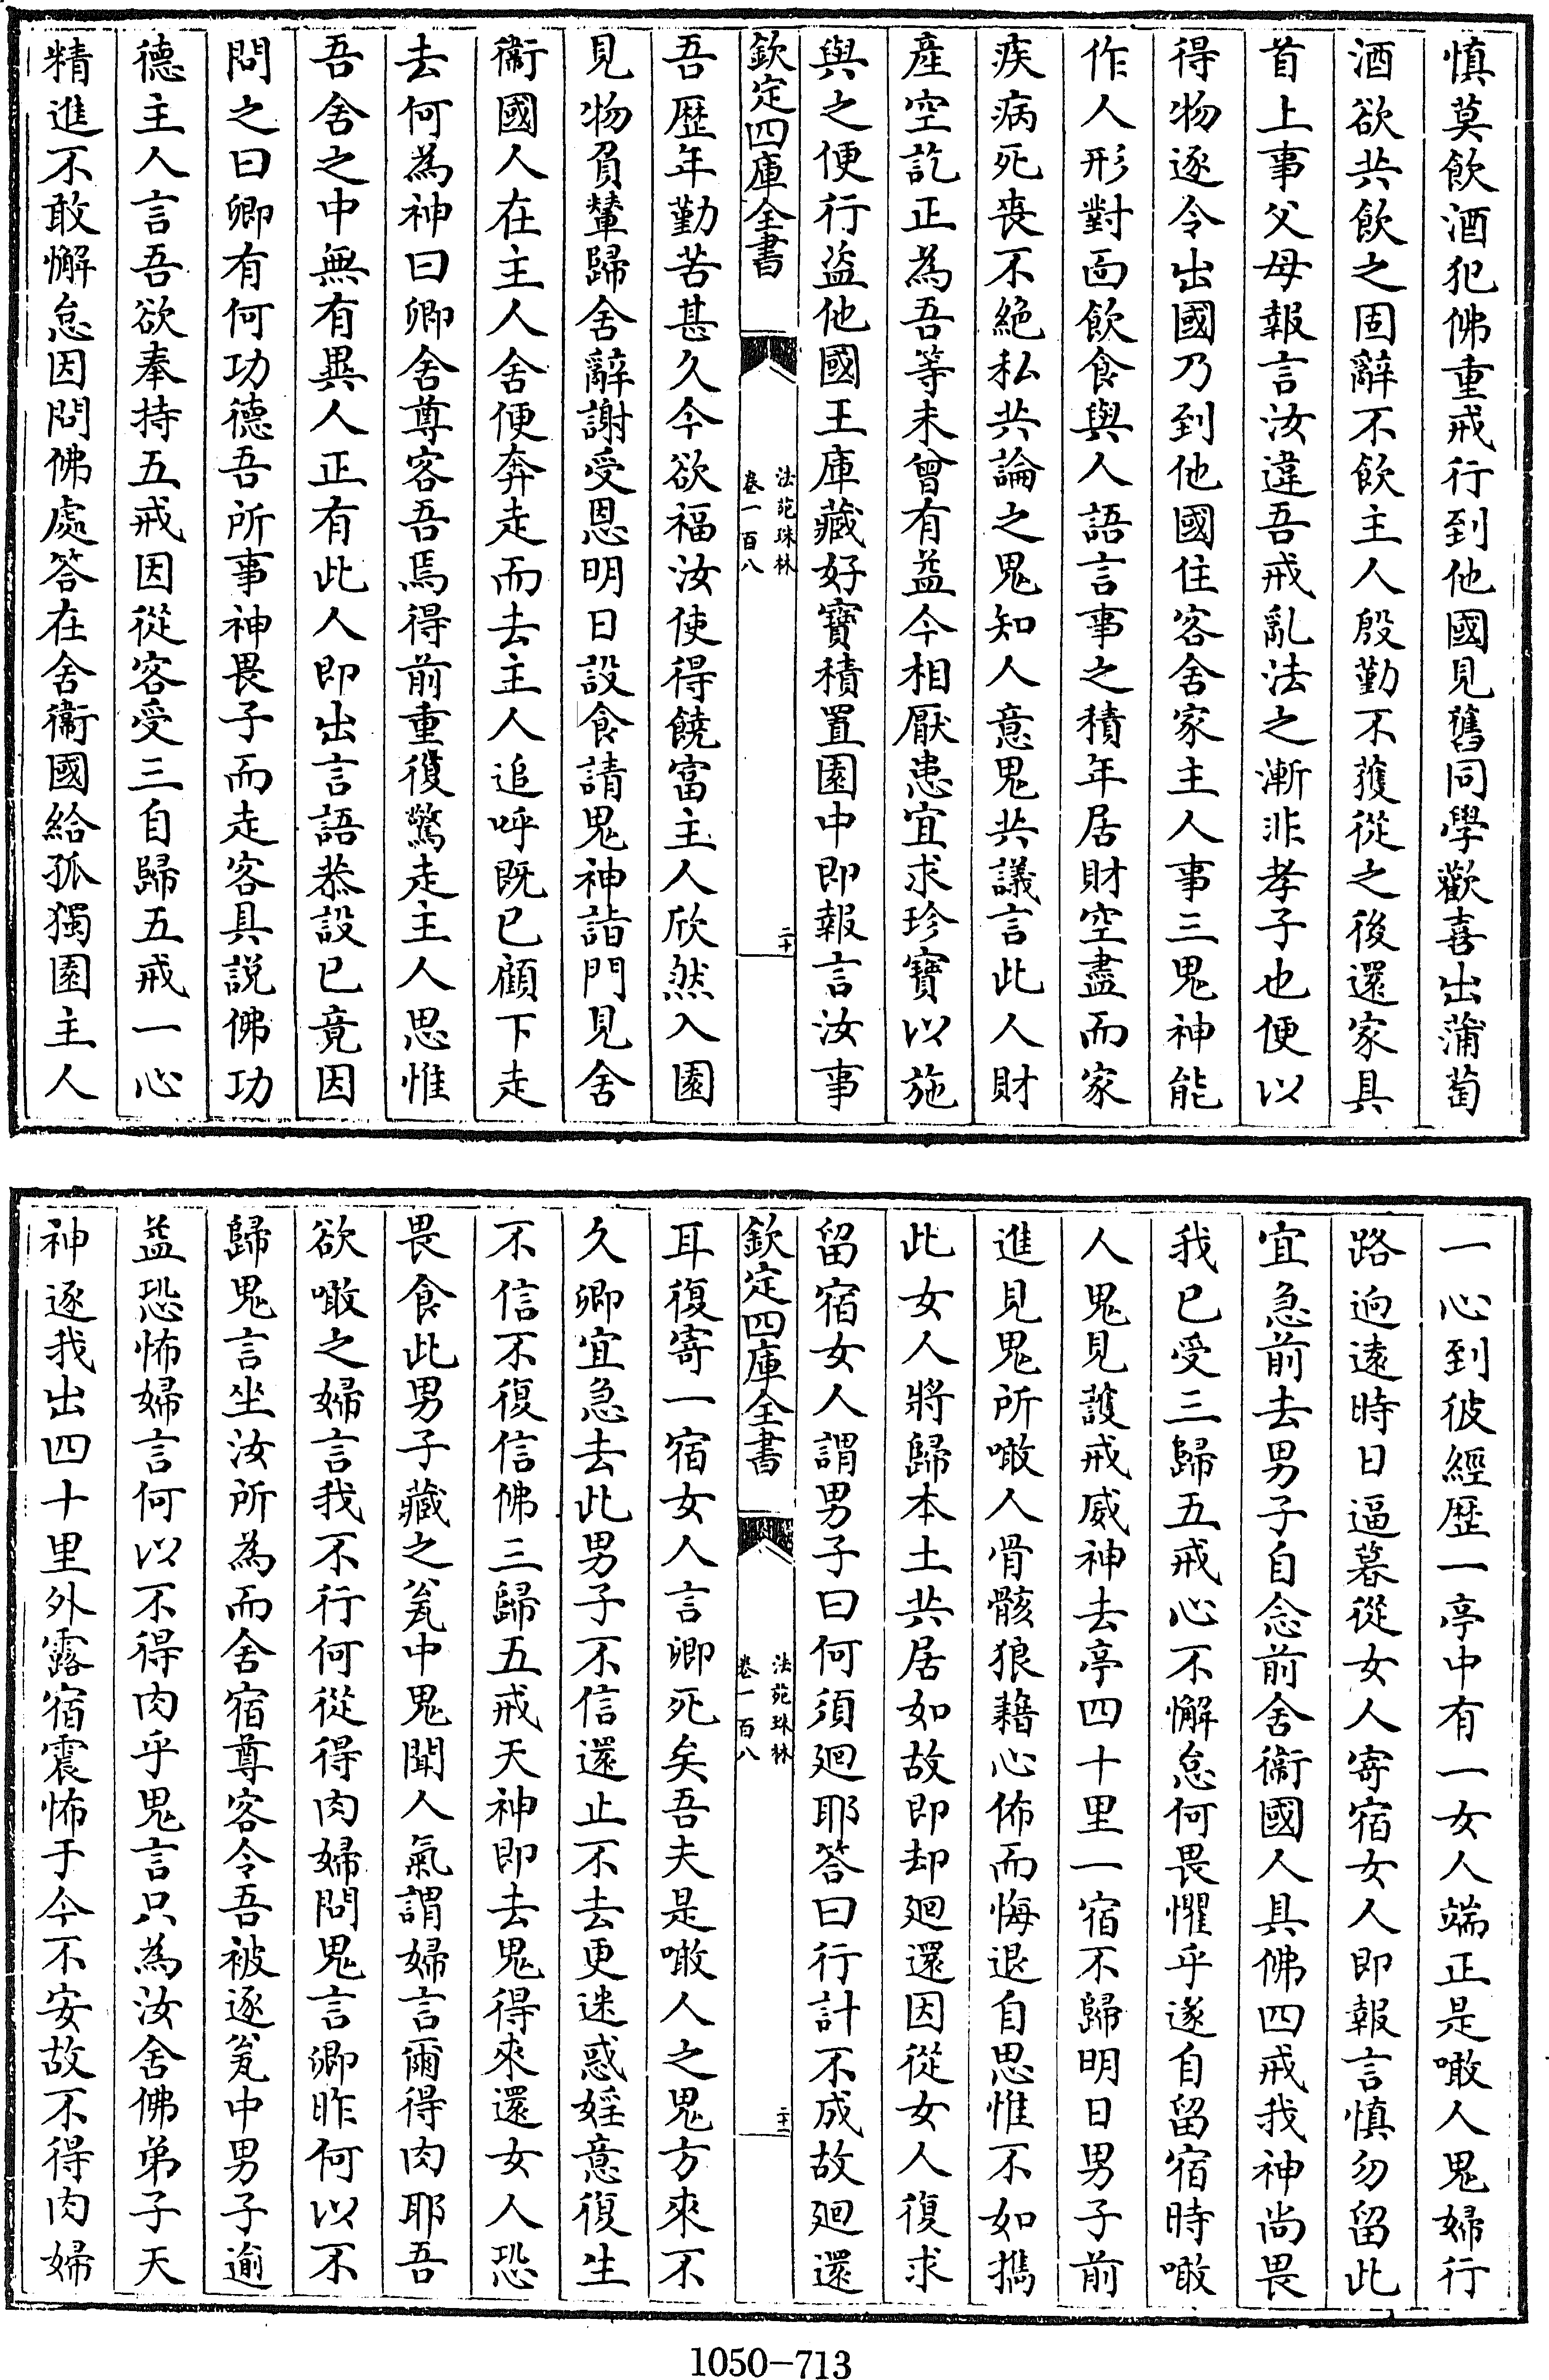 慎莫飲酒犯佛重戒行到他國見舊同學歡喜出蒲萄
酒欲共飲之固辭不飲主人殷勤不獲從之後還家具
首上事父母報言汝違吾戒亂法之漸非孝子也便以
得物逐令出國乃到他國住客舍家主人事三鬼神能
作人形對面飲食與人語言事之積年居財空盡而家
疾病死喪不絶私共論之鬼知人意鬼共議言此人財
産空訖正為吾等未曾有益今相厭患宜求珍寶以施
與之便行盜他國王庫藏好寶積置園中即報言汝事
欽定四庫全書
法苑珠林
卷一百八
二十
吾歴年勤苦甚久今欲福汝使得饒富主人欣然入園
見物負輦歸舍辭謝受恩明日設食請鬼神詣門見舍
衞國人在主人舍便奔走而去主人追呼既已顧下走
去何為神曰卿舍尊客吾焉得前重復驚走主人思惟
吾舍之中無有異人正有此人即出言語恭設已竟因
問之曰卿有何功德吾所事神畏子而走客具說佛功
德主人言吾欲奉持五戒因從容受三自歸五戒一心
精進不敢懈怠因問佛處答在舍衞國給孤獨園主人
一心到彼經歴一亭中有一女人端正是噉人鬼婦行
路逈遠時日逼暮從女人寄宿女人即報言慎勿留此
宜急前去男子自念前舍衞國人具佛四戒我神尚畏
我已受三歸五戒心不懈怠何畏懼乎遂自留宿時噉
人鬼見護戒威神去亭四十里一宿不歸明日男子前
進見鬼所噉人骨骸狼藉心怖而悔退自思惟不如攜
此女人將歸本土共居如故即却廻還因從女人復求
留宿女人謂男子曰何須廻耶答曰行計不成故廻還
欽定四庫全書
法苑珠林
卷一百八
二十一
耳復寄一宿女人言卿死矣吾夫是噉人之鬼方來不
久卿宜急去此男子不信還止不去更迷惑婬意復生
不信不復信佛三歸五戒天神即去鬼得來還女人恐
畏食此男子藏之瓮中鬼聞人氣謂婦言爾得肉耶吾
欲噉之婦言我不行何從得肉婦問鬼言卿昨何以不
歸鬼言坐汝所為而舍宿尊客令吾被逐瓮中男子逾
益恐怖婦言何以不得肉乎鬼言只為汝舍佛弟子天
神逐我出四十里外露宿震怖于今不安故不得肉婦
1050-713